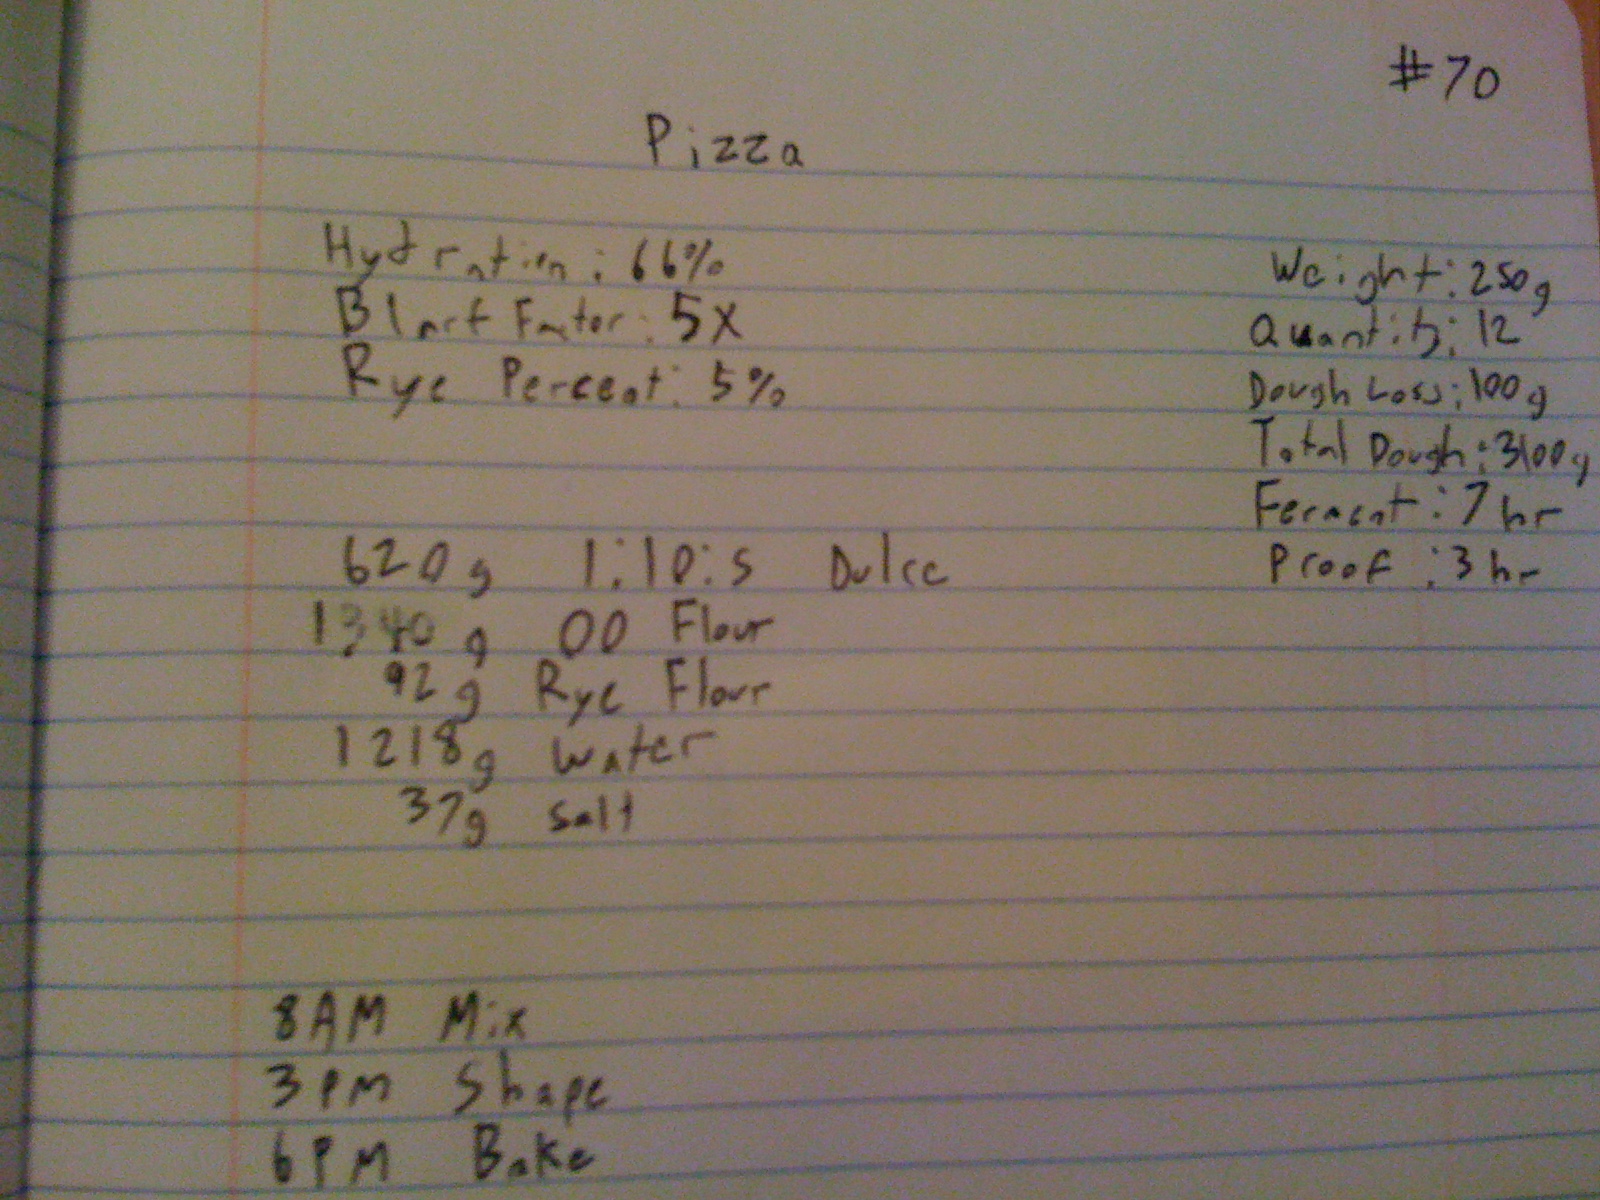 #70
Pizza
Hydration: 66% Weight: 250g
Blart Factor: 5X Quantity: 12
Rye Percent: 5% Dough Loss: 100g
Total Dough: 3100g
Ferment: 7 hr
620g 1:10:5 Dulce Proof: 3 hr
1340g 00 Flour
92g Rye Flour
1218g Water
37g Salt
8AM Mix
3PM Shape
6PM Bake